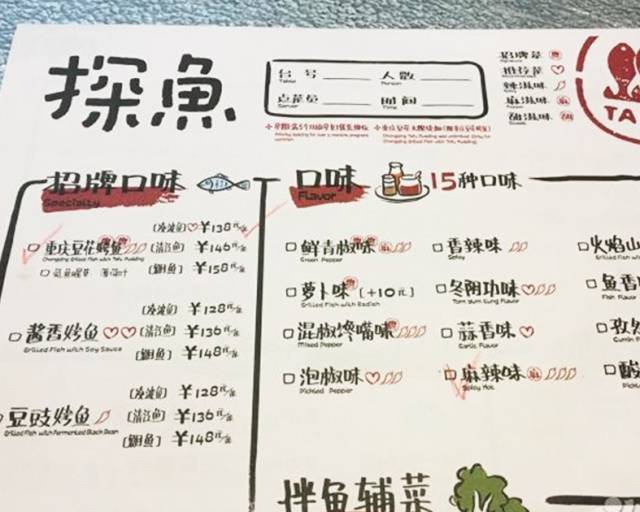 探魚
台号 人数
Table Person
点菜员 时间
Server Time
招牌菜
推荐菜
辣滋味
麻滋味 麻
甜滋味 甜
TA
招牌口味
Specialty
口味 15种口味
Flavor
(凌波鱼) ¥138元/条
重庆豆花烤鱼 (清江鱼) ¥146元/条
Chongqing Grilled Fish with Tofu Pudding
(鮰鱼) ¥158元/条
(凌波鱼) ¥128元/条
酱香烤鱼 (清江鱼) ¥136元/条
Grilled Fish with Soy Sauce
(鮰鱼) ¥148元/条
(凌波鱼) ¥128元/条
豆豉烤鱼 (清江鱼) ¥136元/条
Grilled Fish with Fermented Black Bean
(鮰鱼) ¥148元/条
鲜青椒味 香辣味 火焰山
Green Pepper Spicy Grilled Fish wi
萝卜味 (+10元) 冬阴功味 鱼香
Grilled Fish with Radish Tom Yum Kung Flavor
混椒馋嘴味 蒜香味 孜然
Mixed Pepper Garlic Flavor
泡椒味 麻辣味 麻 酸
Pickled Pepper Spicy Hot Pickled
拌鱼辅菜